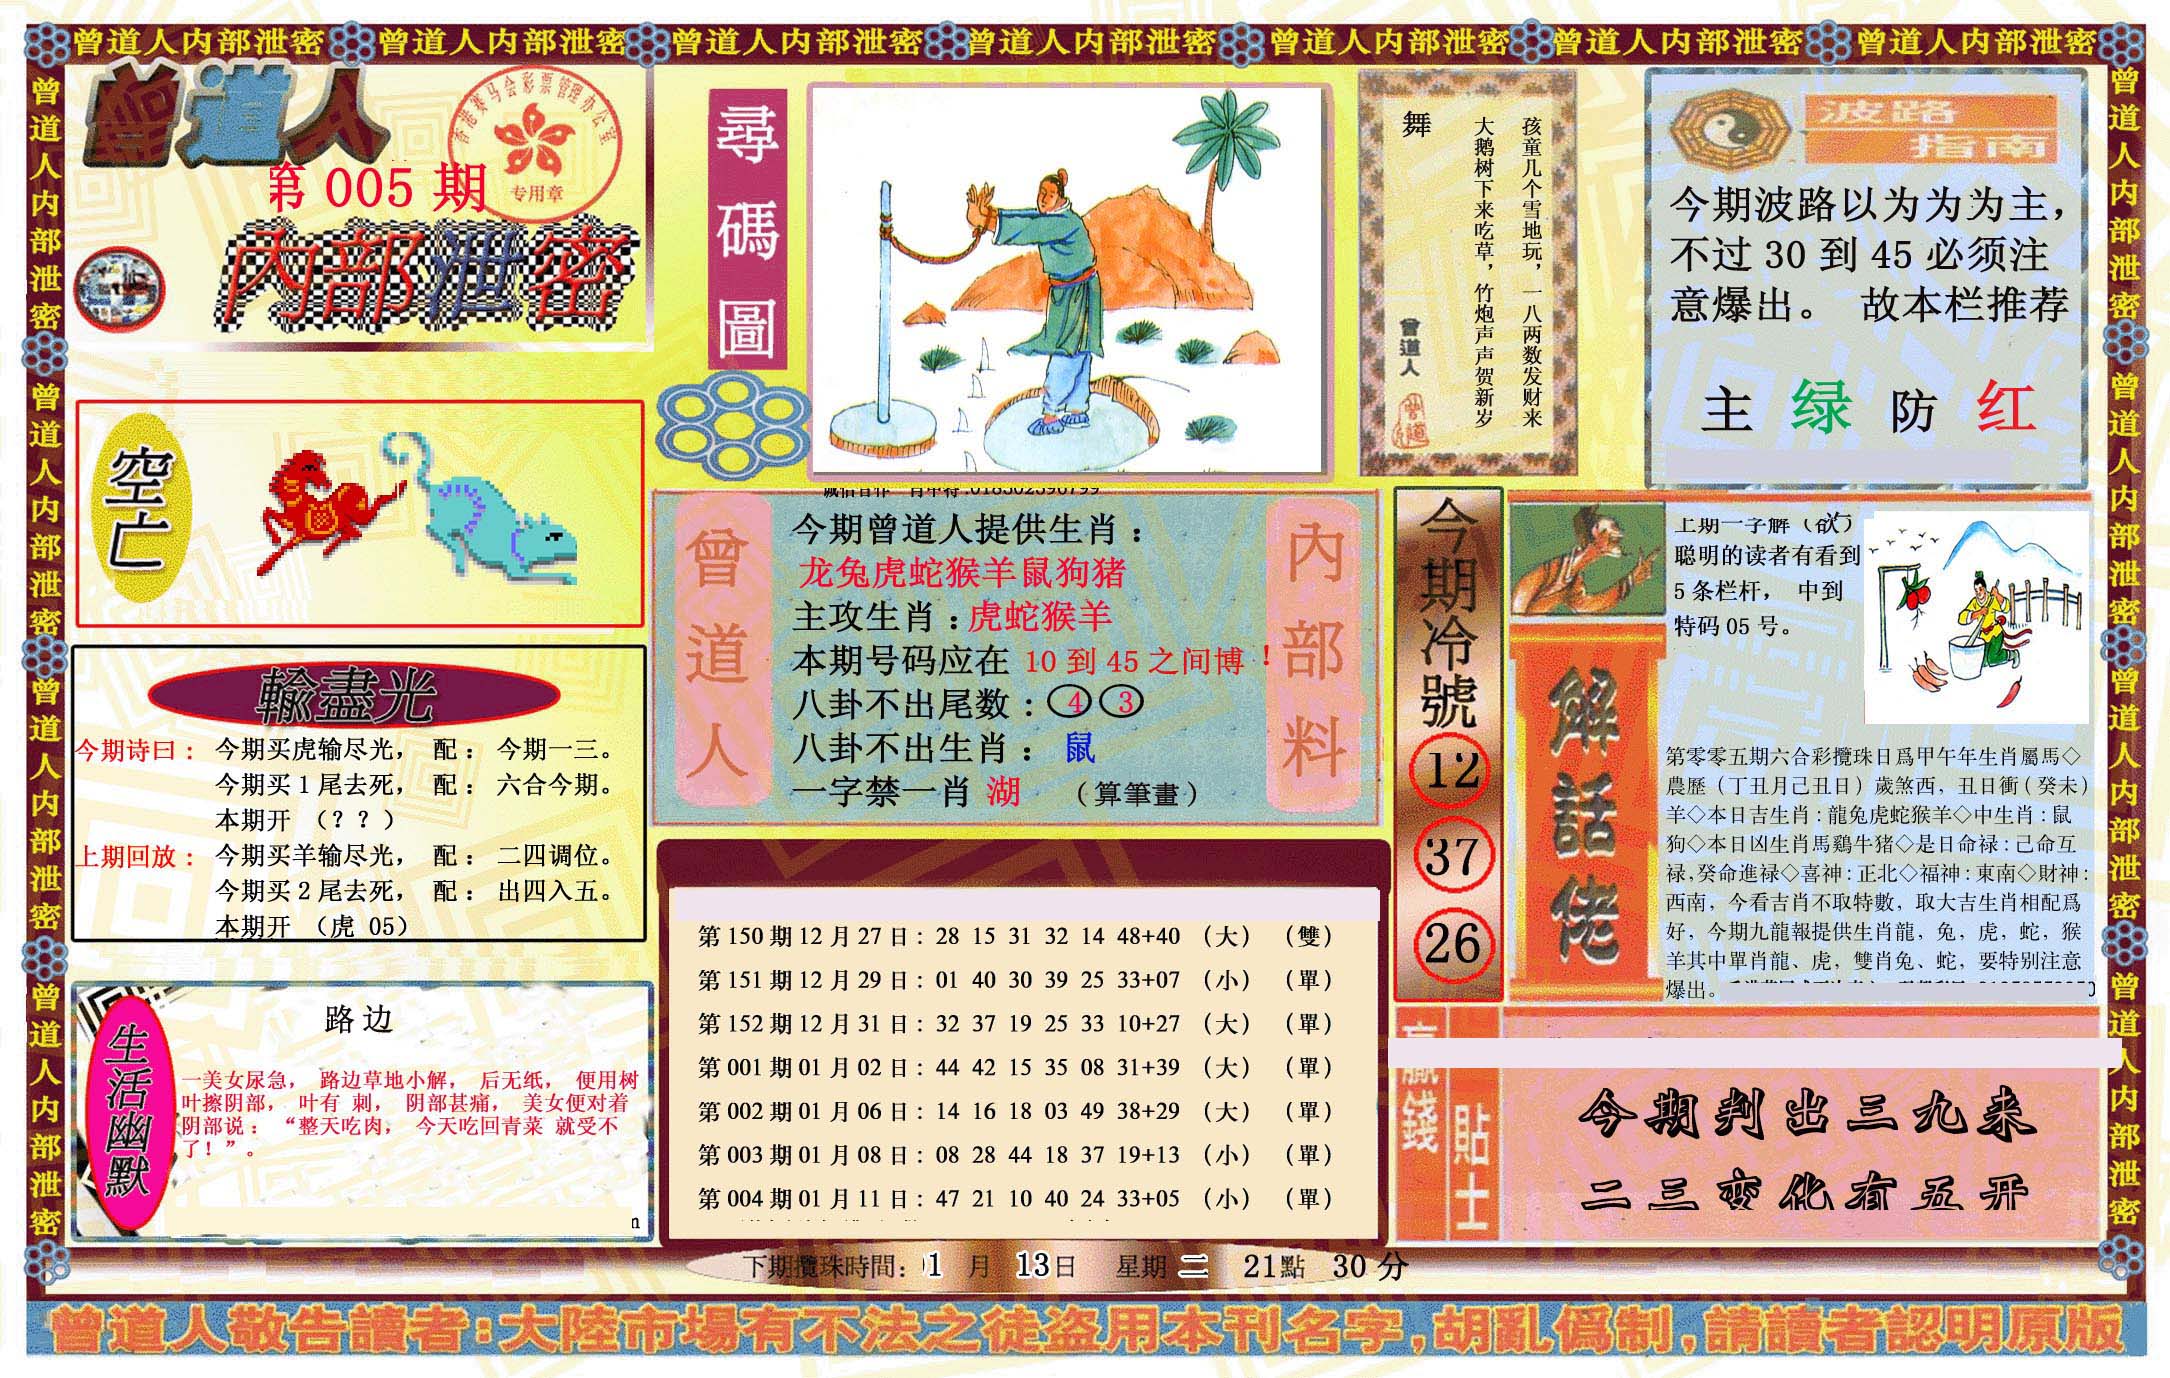 曾道人内部泄密 曾道人内部泄密 曾道人内部泄密 曾道人内部泄密 曾道人内部泄密 曾道人内部泄密 曾道人内部泄密
曾道人内部泄密 曾道人内部泄密 曾道人内部泄密 曾道人内部泄密
曾道人
香港赛马会彩票管理办公室
专用章
第 005 期
內部泄密
空亡
輸盡光
今期诗曰： 今期买虎输尽光， 配： 今期一三。
今期买 1 尾去死， 配： 六合今期。
本期开 （? ? ）
上期回放： 今期买羊输尽光， 配： 二四调位。
今期买 2 尾去死， 配： 出四入五。
本期开 （虎 05）
生活幽默
路边
一美女尿急， 路边草地小解， 后无纸， 便用树
叶擦阴部， 叶有 刺， 阴部甚痛， 美女便对着
阴部说： “整天吃肉， 今天吃回青菜 就受不
了！”。
尋碼圖
孩童几个雪地玩，一八两数发财来
大鹅树下来吃草，竹炮声声贺新岁
舞
曾道人
波路
指南
今期波路以为为为主，
不过 30 到 45 必须注
意爆出。 故本栏推荐
主 绿 防 红
曾道人
內部料
今期曾道人提供生肖：
龙兔虎蛇猴羊鼠狗猪
主攻生肖：虎蛇猴羊
本期号码应在 10 到 45 之间博！
八卦不出尾数：4 3
八卦不出生肖： 鼠
一字禁一肖 湖 （算筆畫）
第 150 期 12 月 27 日：28 15 31 32 14 48+40 （大） （雙）
第 151 期 12 月 29 日：01 40 30 39 25 33+07 （小） （單）
第 152 期 12 月 31 日：32 37 19 25 33 10+27 （大） （單）
第 001 期 01 月 02 日：44 42 15 35 08 31+39 （大） （單）
第 002 期 01 月 06 日：14 16 18 03 49 38+29 （大） （單）
第 003 期 01 月 08 日：08 28 44 18 37 19+13 （小） （單）
第 004 期 01 月 11 日：47 21 10 40 24 33+05 （小） （單）
今期冷號
12
37
26
解話佬
上期一字解（欲）
聪明的读者有看到
5 条栏杆， 中到
特码 05 号。
第零零五期六合彩攪珠日爲甲午年生肖屬馬◇
農歷（丁丑月己丑日）歲煞西，丑日衝（癸未）
羊◇本日吉生肖：龍兔虎蛇猴羊◇中生肖：鼠
狗◇本日凶生肖馬鷄牛猪◇是日命禄：己命互
禄,癸命進禄◇喜神：正北◇福神：東南◇財神：
西南，今看吉肖不取特數，取大吉生肖相配爲
好，今期九龍報提供生肖龍，兔，虎，蛇，猴
羊其中單肖龍、虎，雙肖兔、蛇，要特别注意
爆出。
贏錢
貼士
今期判出三九来
二三变化有五开
下期攪珠時間：01 月 13日 星期 二 21點 30 分
曾道人敬告讀者：大陸市場有不法之徒盜用本刊名字，胡亂僞制，請讀者認明原版